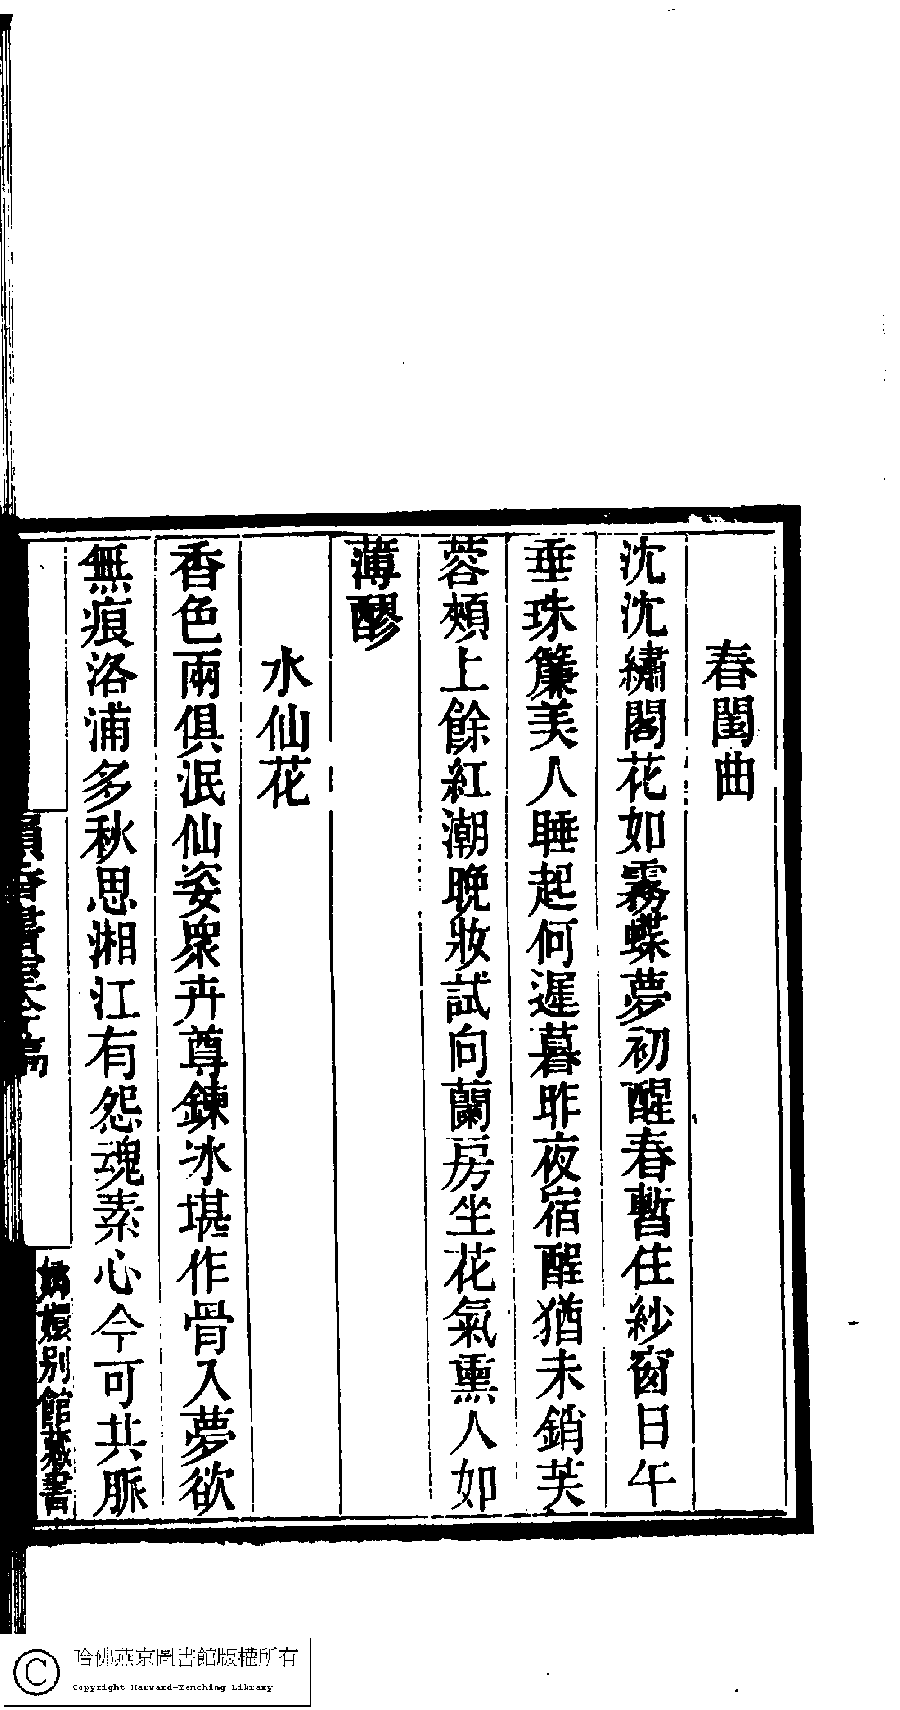 春閨曲
沈沈繡閣花如霧蝶夢初醒春暫住紗窗日午
垂珠簾美人睡起何遲暮昨夜宿酲猶未銷芙
蓉頰上餘紅潮晚妝試向蘭房坐花氣熏人如
薄醪
水仙花
香色兩俱泯仙姿衆卉尊鍊冰堪作骨入夢欲
無痕洛浦多秋思湘江有怨魂素心今可共脈
韻香書室吟稿
嫏嬛别館藏書
哈佛燕京圖書館版權所有
Copyright Harvard-Yenching Library